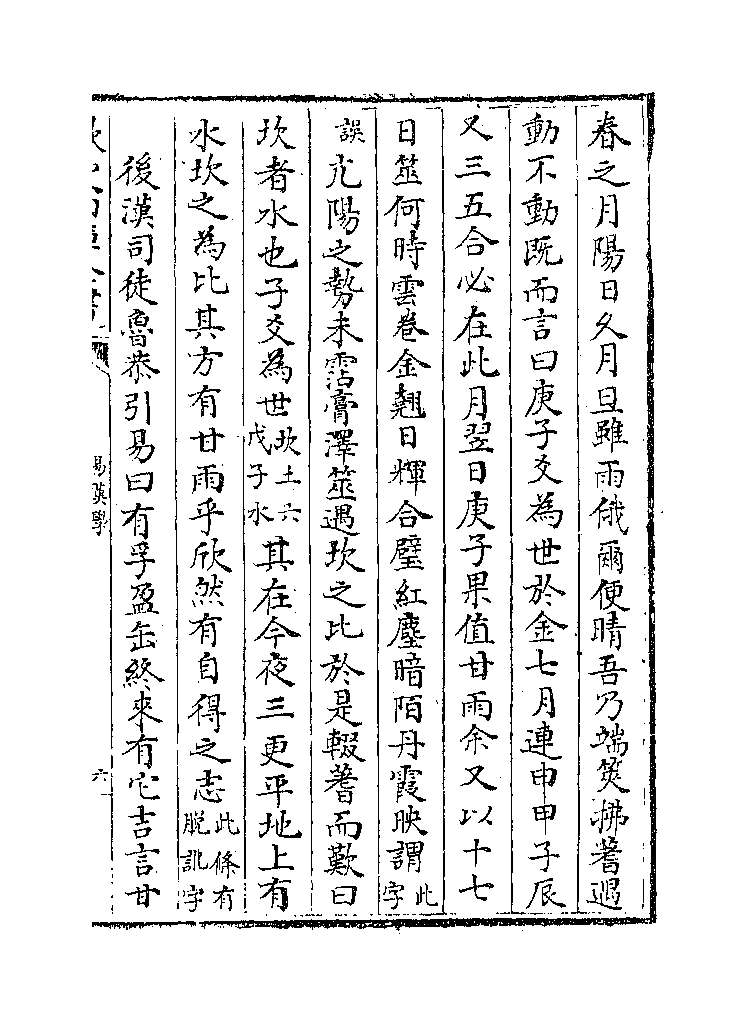 春之月陽日久月旦雖雨俄爾便晴吾乃端筴拂蓍遇
動不動既而言曰庚子爻為世於金七月連申甲子辰
又三五合必在此月翌日庚子果值甘雨余又以十七
日筮何時雲卷金翹日輝合璧紅塵暗陌丹霞映謂此字
誤亢陽之勢未霑膏澤筮遇坎之比於是輟蓍而歎曰
坎者水也子爻為世坎土六戊子水其在今夜三更平地上有
水坎之為比其方有甘雨乎欣然有自得之志此條有脫訛字
後漢司徒魯恭引易曰有孚盈缶終來有它吉言甘
易漢學
六